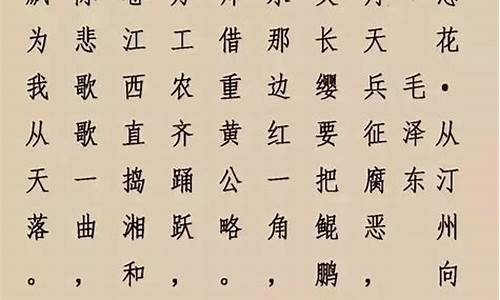 花·从汀州向
毛泽东
天兵征腐恶，
长缨要把鲲鹏
那边红一角，
借重黄公略。
工农齐踊跃，
江西直捣湘和
悲歌歌一曲，
为我从天落。